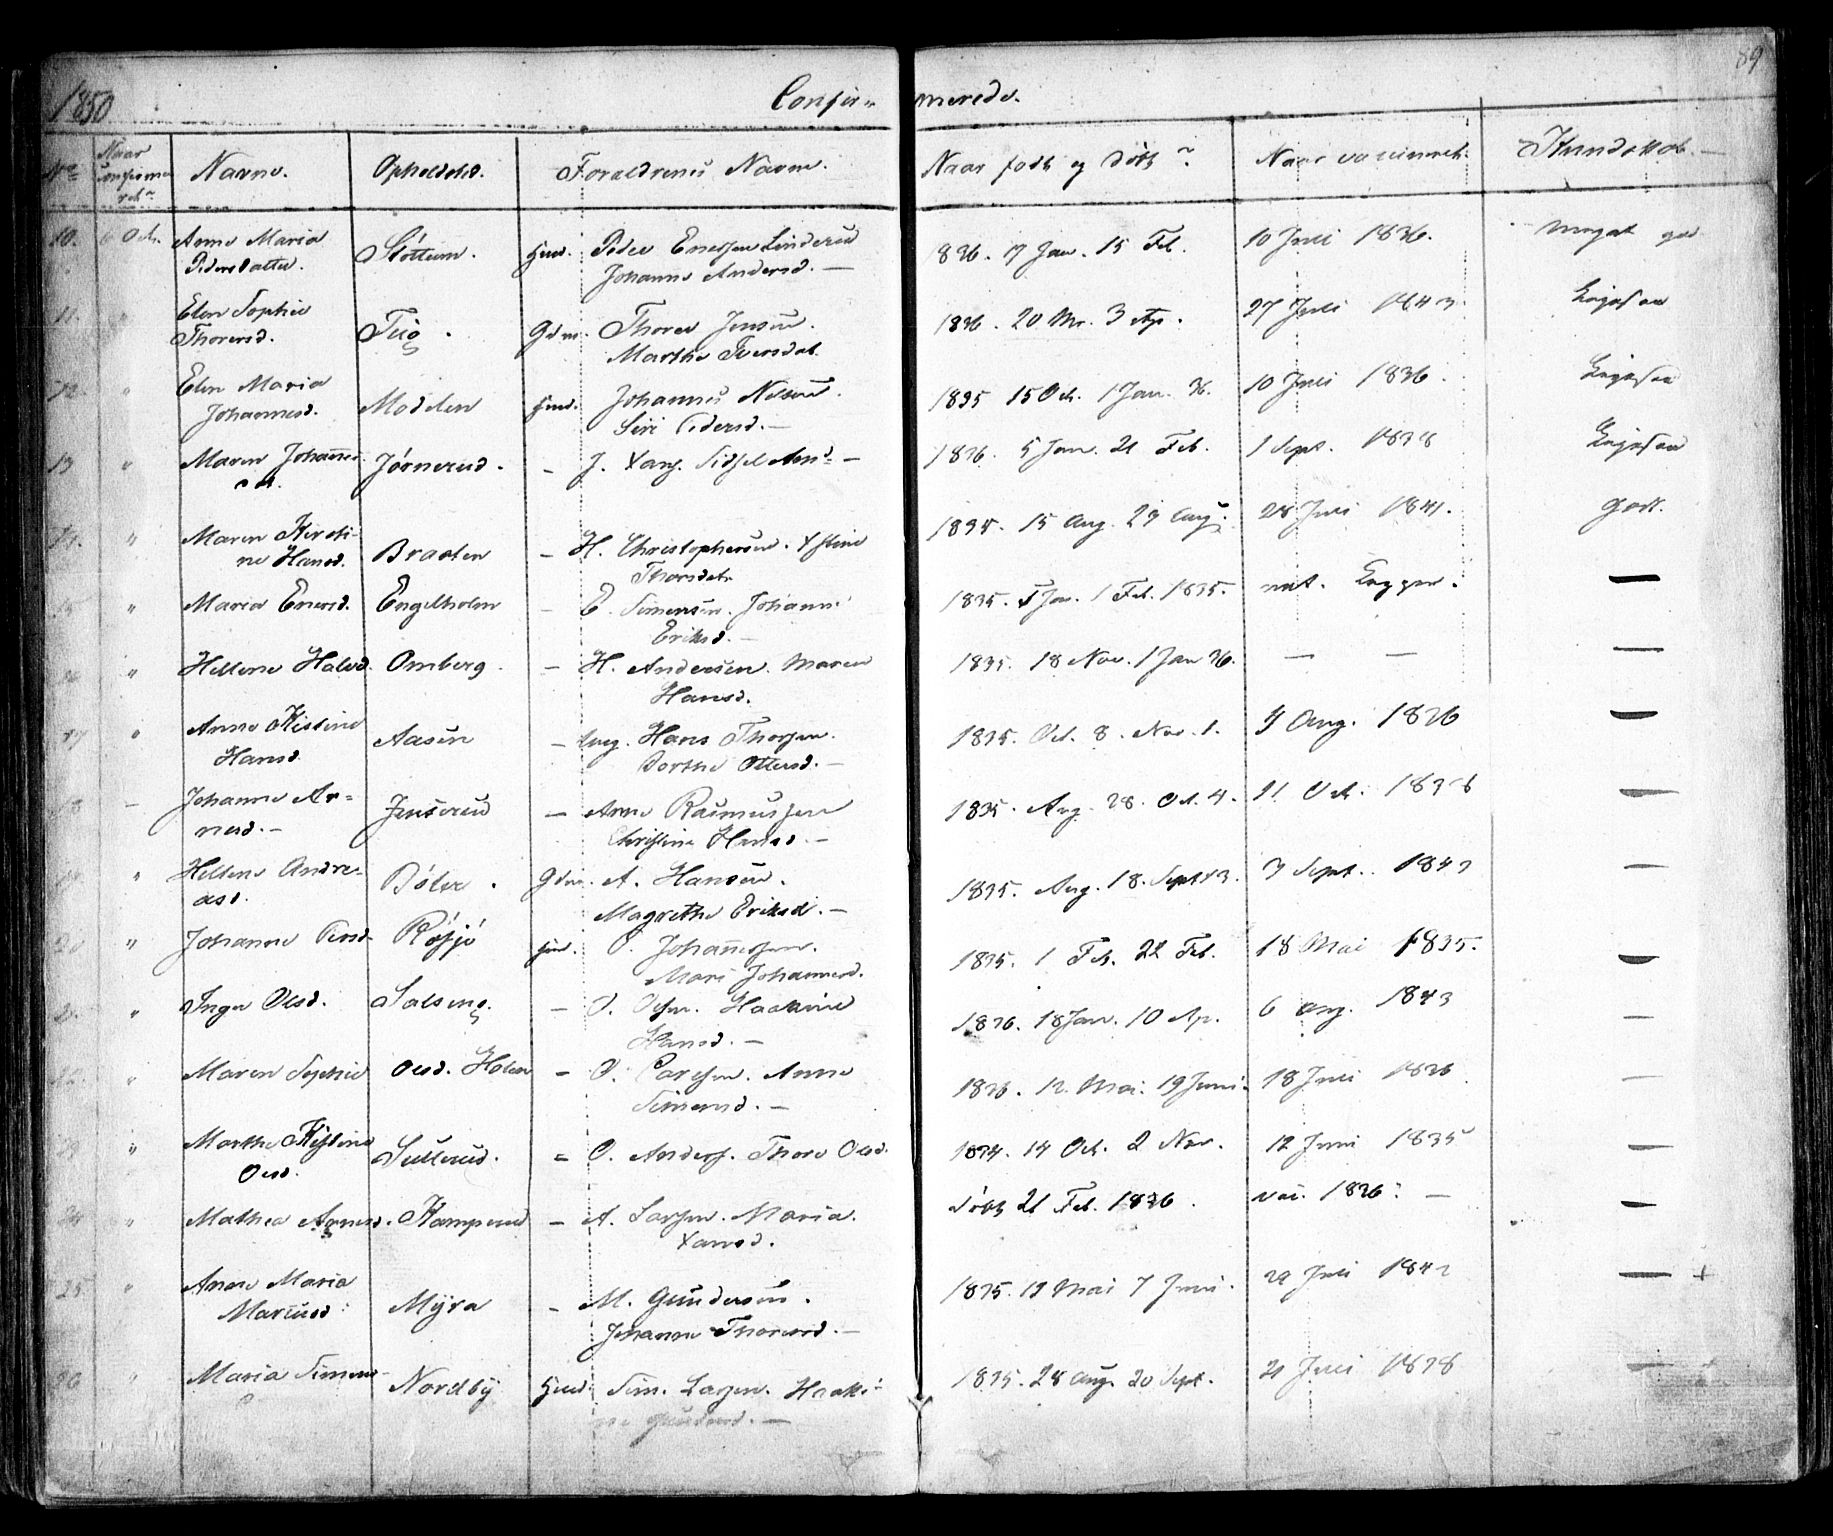 1850 Confir- merede. 89
No Naar Confirmeret Navne. Opholdsted. Foraldrenes Navne. Naar født og døbt Naar vaccineret. Kundskab.
10. 6 Oct. Anne Maria Støttum. Huusm. Peder Linderud 1836. 17 Jan. 15 Feb. 10 Juli 1836. meget god
Pedersdatter. Johanne Andersd. —
11. Elen Sophie Tiig. Gdm. Thorer Jensen. 1836. 20 Mr. 3 Ap. 27 Juli 1843.
Thorersd. Marthe Iversdat.
12. " Elen Maria Johannes Nelsen. 1835 15 Oct. 1 Jan. 36. 10 Juli 1836.
Johannesd. Siri Pedersd. —
13 " Maren Johannes- Jørnerud. — J. 1836. 5 Jan. 21 Feb. 1 Sept. 1838
14. " Maren Kirsti- Braaten — H. Christophersen. 15 Aug. 29 Aug. 28 Juli 1841. godt.
ne Hansd. Thorsdat.
15 " Maria Enersd. Engelholm — E. Simensen. Johanne 1835. 5 Jan. 1 Feb. 1835. nat. Kopper. —
Eriksd. —
16 " Hellene Halsd. Omberg. — H. Andersen. Maren 1835. 18 Nov. 1 Jan 36. — — —
Hansd.
17 " Anne Kistine Aasen — Ung. Hans Thorsen. 1835. Oct. 8. Nov. 1. 9 Aug. 1836 —
Hansd. Dorthe Ottersd. —
18 — Johanne Ar- Jenserud — Arne Rasmussen 1835. Aug. 28. Oct. 4. 21 Oct. 1838 —
nesd. — Christine Hansd. —
19 " Hellene Andre- Bøler. Gdm. A. Hansen. 1835. Aug. 18. Sept 13. 3 Sept. 1843 —
asd. Magrethe Eriksd. —
20 " Johanne Persd. Røsjø Huusm. P. Johannessen. 1835. 1 Feb. 22 Feb. 18 Mai 1835. —
Mari Johannesd.
21. " Inger Olsd. — O. Olsen. Haakine 1836. 18 Jan. 10 Ap. 6 Aug. 1843 —
Hansd. —
22 " Maren Sophie Olsd. Holen — O. Larsen. Anne 1836. 12 Mai. 19 Juni. 18 Juli 1836 —
Simensd. —
23 " Marthe Kistine Sullerud. = O. Anders. Thore Olsd. 1834. 14 Oct. 2 Nov. 12 Juni 1835 —
Olsd.
24 " Mathea Kamperud — A. Larsen. Maria døbt 21 Feb. 1836. vac. 1836. — —
Hansd.
25 " Anne Maria Myra — M. Gundersen. 1835. 19 Mai 7 Juni. 29 Juli 1842 — +
Mariusd. Johanne Thorersd. —
26 " Maria Simens- Nordby Huusm. Sim. Larsen. Haaki- 1835. 28 Aug. 20 Sept. 21 Juli 1838 — +
ne Gundersd. —